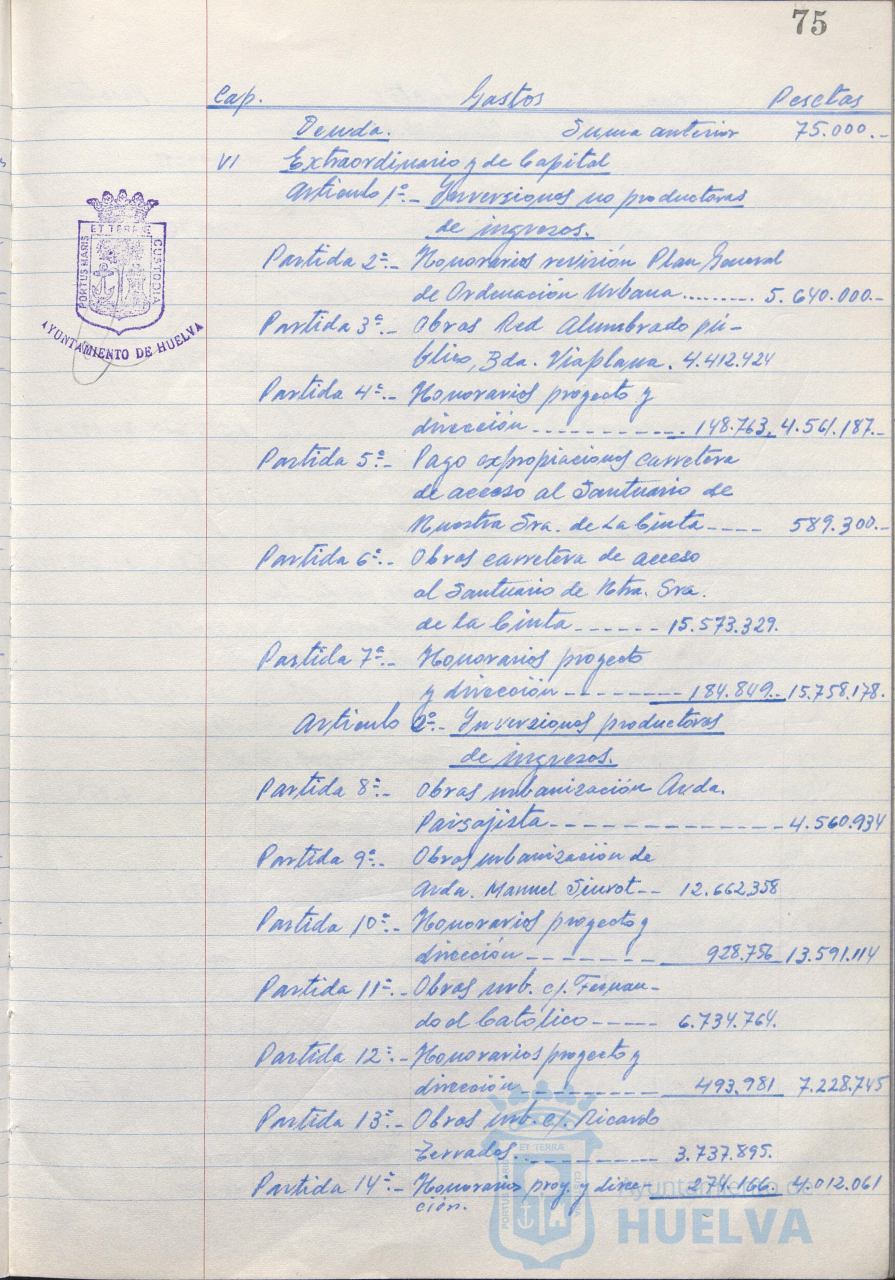 75
Cap. Gastos Pesetas
Deuda. Suma anterior 75.000.-
VI Extraordinario y de Capital
Artículo 1º.- Inversiones no productoras
de ingresos.
Partida 2ª.- Honorarios revisión Plan General
de Ordenación Urbana........ 5.640.000.-
Partida 3ª.- Obras Red Alumbrado pú-
blico, Bda. Viaplana. 4.412.424
Partida 4ª.- Honorarios proyecto y
dirección ----------- 148.763, 4.561.187.-
Partida 5ª.- Pago expropiaciones carretera
de acceso al Santuario de
Nuestra Sra. de La Cinta ---- 589.300.-
Partida 6ª.- Obras carretera de acceso
al Santuario de Ntra. Sra.
de la Cinta ------ 15.573.329.
Partida 7ª.- Honorarios proyecto
y dirección -------- 184.849.- 15.758.178.
Artículo 2º.- Inversiones productoras
de ingresos.
Partida 8ª.- Obras urbanización Avda.
Paisajista --------------- 4.560.934
Partida 9ª.- Obras urbanización de
Avda. Manuel Siurot -- 12.662.358
Partida 10ª.- Honorarios proyecto y
dirección --------- 928.756 13.591.114
Partida 11ª.- Obras urb. c/. Fernan-
do el Católico ----- 6.734.764.
Partida 12ª.- Honorarios proyecto y
dirección --------- 493.981 7.228.745
Partida 13ª.- Obras urb. c/. Ricardo
Terrades. ---------- 3.737.895.
Partida 14ª.- Honorario proy. y direc- 274.166. 4.012.061
ción.
ET TERRÆ
PORTUS MARIS
CUSTODIA
AYUNTAMIENTO DE HUELVA
ET TERRÆ
PORTUS MARIS
Ayuntamiento de
HUELVA